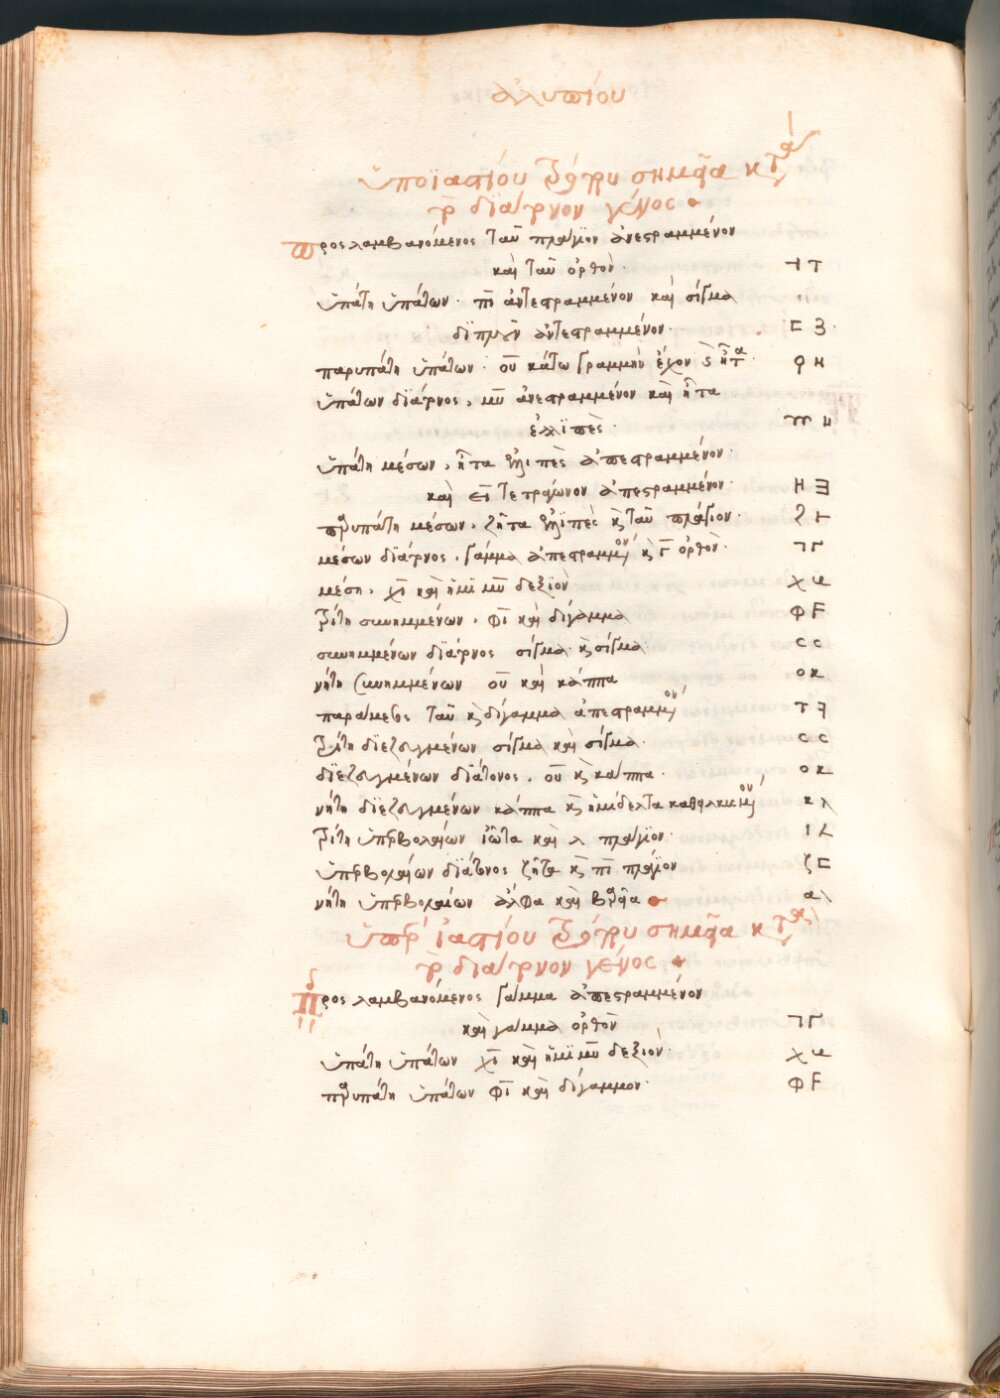 ἀλυπίου
ὑποϊαστίου τρόπου σημεῖα κατὰ
τὸ διάτονον γένος
προσλαμβανόμενος ταῦ πλάγιον ἀνεστραμμένον
καὶ ταῦ ὀρθόν · ⊣ Τ
ὑπάτη ὑπάτων · πῖ ἀντεστραμμένον καὶ σίγμα
διπλοῦν ἀντεστραμμένον ·
παρυπάτη ὑπάτων · οῦ κάτω γραμμὴν ἔχον
ὑπάτων διάτονος, μῦ ἀνεστραμμένον καὶ ἦτα
ἐλιπὲς ·
ὑπάτη μέσων, ἦτα ἐλλιπὲς ἀπεστραμμένον
καὶ εῖ τετράγωνον ἀπεστραμμένον · Η Ǝ
παρυπάτη μέσων, ζῆτα ἐλλιπὲς κ ταῦ πλάγιον ·
μέσων διάτονος, γάμμα ἀπεστραμμον κ Γ ὀρθὸν · ⅂ Γ
μέση, χῖ καὶ ἡμιμῦ δεξιὸν
τρίτη συνημμένων, φῖ καὶ δίγαμμα φ F
συνημμένων διάτονος σίγμα κ σίγμα c c
νήτη συνημμένων οῦ καὶ κάππα ο κ
παράμεσος ταῦ κ δίγαμμα ἀπεστραμμον
τρίτη διεζευγμένων σίγμα καὶ σίγμα · c c
διεζευγμένων διάτονος, οῦ κ κάππα · ο κ
νήτη διεζευγμένων κάππα κ ἡμίδελτα
τρίτη ὑπερβολαίων ἰῶτα καὶ λ πλάγιον ·
ὑπερβολαίων διάτονος ζῆτα κ πῖ πλάγιον ζ ⊏
νήτη ὑπερβολαίων ἄλφα καὶ βαρεῖα α \
ὑπεριαστίου τρόπου σημεῖα κατὰ
τὸ διάτονον γένος
προσλαμβανόμενος γάμμα ἀπεστραμμένον
καὶ γάμμα ὀρθὸν ⅂ Γ
ὑπάτη ὑπάτων χῖ καὶ ἡμιμῦ δεξιὸν ·
παρυπάτη ὑπάτων φῖ καὶ δίγαμμον · φ F